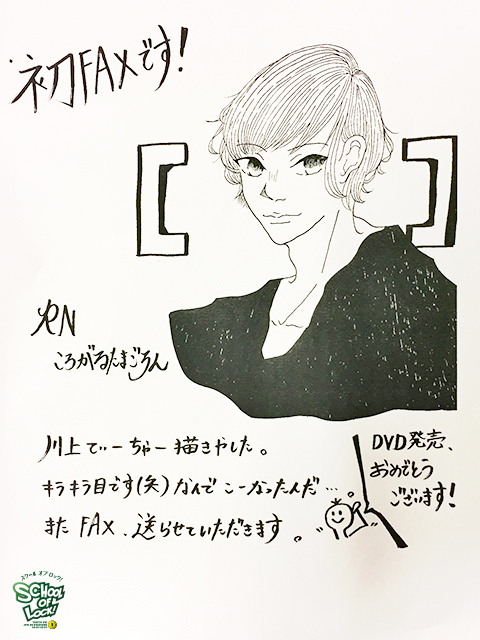 初FAXです!
[ ]
RN
ころがるたまごろん
川上てぃーちゃー描きやした。
キラキラ目です(笑)なんでこーなったんだ…
また FAX、送らせていただきます。
DVD発売、
おめでとう
ございます!
スクール オブ ロック!
SCHOOL
OF
LOCK!